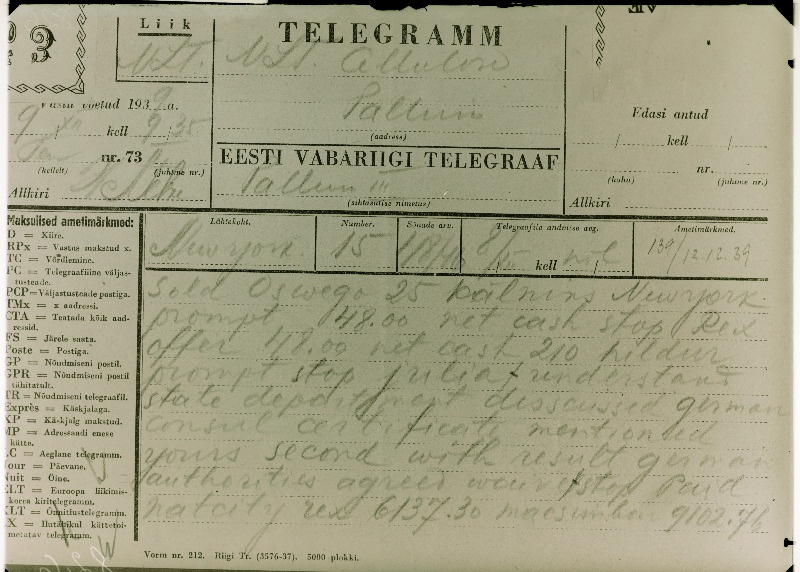 3
Liik
NLT.
TELEGRAMM
NLT. Cellulose
Tallinn
(aadress)
Vastu võetud 1939 a.
9/XII kell 9 35
nr. 73
(kellelt) (juhune nr.)
Allkiri
EESTI VABARIIGI TELEGRAAF
Tallinn III
(sihtasulise nimetus)
Edasi antud
/ kell /
nr.
(kuhu) (juhune nr.)
Allkiri
Maksulised ametimärkmed:
D = Kiire.
RPx = Vastus makstud x.
TC = Võrdlemine.
PC = Telegraafiline väljas-
tusteade.
PCP = Väljastusteade postiga.
TMx = x aadressi.
CTA = Teatada kõik aad-
ressid.
FS = Järele saata.
Poste = Postiga.
GP = Nõudmiseni postil.
GPR = Nõudmiseni postil
tähitatult.
TR = Nõudmiseni telegraafil.
Exprès = Käskjalaga.
XP = Käskjalg makstud.
MP = Adressaadi enese
kätte.
LC = Aeglane telegramm.
Jour = Päevane.
Nuit = Öine.
ELT = Euroopa liikmis-
korra kiritelegramm.
XLT = Õnnitlustelegramm.
Lähtekoht. Number. Sõnade arv. Telegraafile andmise aeg. Ametimärkmed.
Newyork 15 8/XII kell nil 139/12.12.39
Sold Oswego 25 Kalnins Newyork
prompt 48.00 net cash stop Rex
offer 48.00 net cash 210 hildur
prompt stop understand
state department disscussed german
consul certificate mentioned
yours second with result german
authorities agreed waive stop Paid
natcity rex 6137.30 9102.76
Vorm nr. 212. Riigi Tr. (3576-37). 5000 plokki.